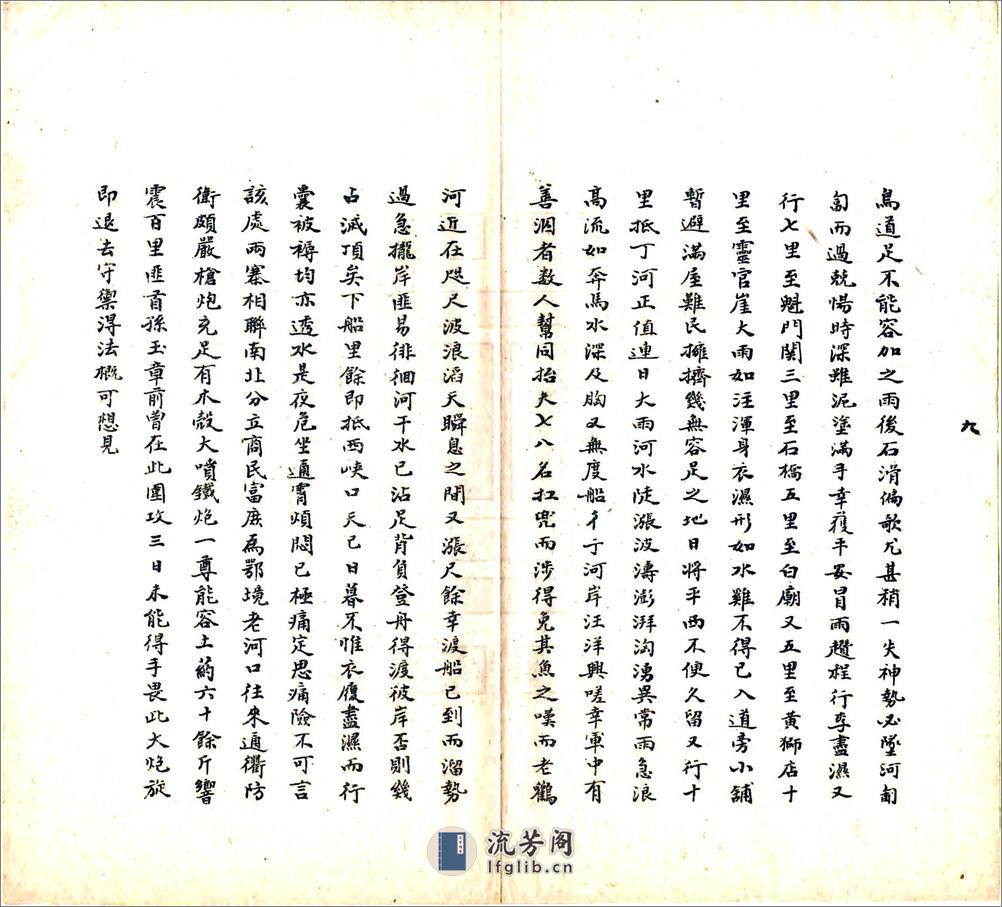 九
鳥道足不能容加之雨後石滑偏欹尤甚稍一失神勢必墜河匍
匐而過兢惕時深雖泥塗滿手幸獲平安冒雨趲程行李盡濕又
行七里至魁門關三里至石橋五里至白廟又五里至黃獅店十
里至靈官崖大雨如注渾身衣濕形如水雞不得已入道旁小舖
暫避滿屋難民擁擠幾無容足之地日將平西不便久留又行十
里抵丁河正值連日大雨河水陡漲波濤澎湃洶湧異常雨急浪
高流如奔馬水深及胸又無度船彳亍河岸汪洋興嗟幸軍中有
善泅者数人幫同抬夫七八名扛兜而涉得免其魚之嘆而老鸛
河近在咫尺波浪滔天瞬息之間又漲尺餘幸渡船已到而溜勢
過急攏岸匪易徘徊河干水已沾足背負登舟得渡彼岸否則幾
占滅頂矣下船里餘即抵西峽口天已日暮不惟衣履盡濕而行
囊被褥均亦透水是夜危坐通宵煩悶已極痛定思痛險不可言
該處兩寨相聯南北分立商民富庶為鄂境老河口往來通衢防
衛頗嚴槍炮充足有木殼大噴鐵炮一尊能容土葯六十餘斤響
震百里匪首孫玉章前曾在此圍攻三日未能得手畏此大炮旋
即退去守禦得法概可想見
流芳阁
lfglib.cn